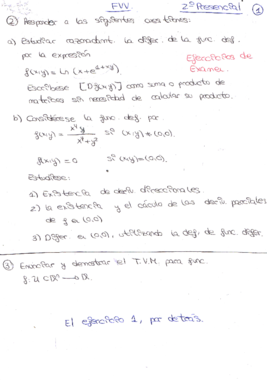 FVV 2º Presencial 1
2 Responder a las siguientes cuestiones:
a) Estudiar razonadamt. la difer. de la func def.
por la expresión Ejercicios de
Examen.
Escríbase [Df(x,y)] como suma o producto de
matrices sin necesidad de calcular su producto.
b) Considérese la func. def. por
f(x,y) = x⁴y / x⁴+y² si (x,y) ≠ (0,0).
f(x,y) = 0 si (x,y) = (0,0).
Estudiese:
1) Existencia de deriv. direccionales.
2) la existencia y el cálculo de las deriv. parciales
de f a (0,0)
3) Difer a (0,0), utilizando la def. de func difer.
3 Enunciar y demostrar el T.V.M. para func.
El ejercicio 1, por detrás.